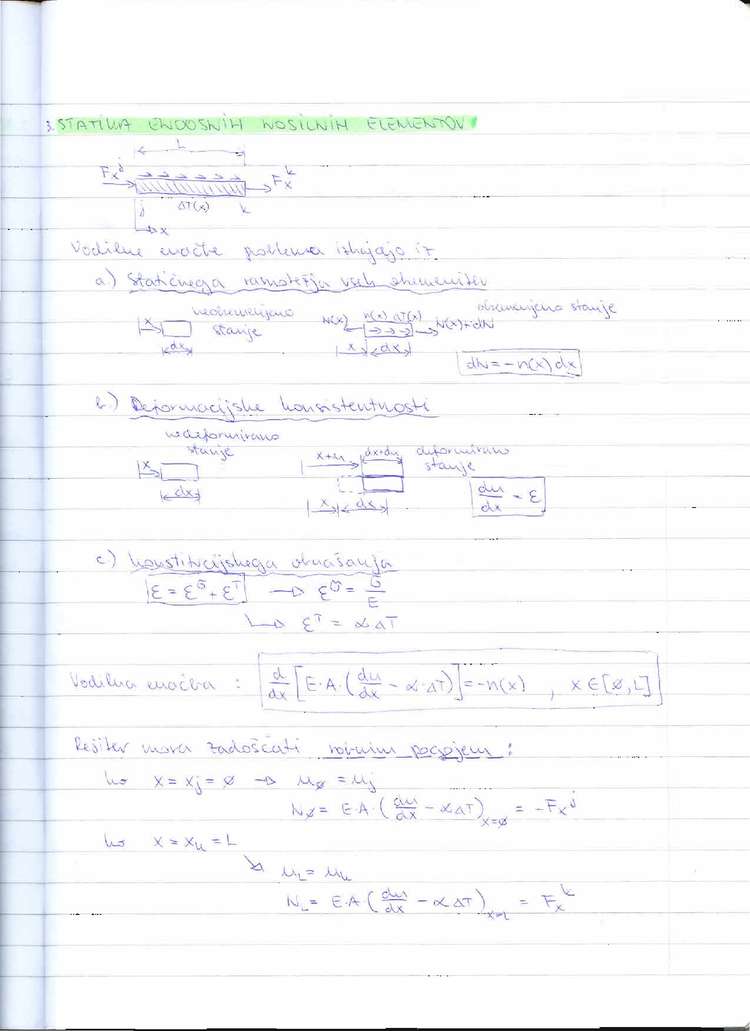 3. STATIKA ENOOSNIH NOSILNIH ELEMENTOV
L
Fx^j Fx^k
ΔT(x)
j k
x
Vodilne enačbe problema izhajajo iz
a.) Statičnega ravnotežja vseh elementov
neobremenjeno stanje
x
dx
obremenjeno stanje
N(x) n(x) ΔT(x) N(x)+dN
x dx
dN = -n(x)dx
b.) Deformacijske konsistentnosti
nedeformirano stanje
x
dx
x+u dx+du deformirano stanje
x dx
du/dx = ε
c.) konstitucijskega obnašanja
ε = ε^σ + ε^T → ε^σ = σ/E
↳ ε^T = α ΔT
Vodilna enačba : d/dx [E·A·(du/dx - α·ΔT)] = -n(x) , x ∈ [ø, L]
Rešitev mora zadoščati robnim pogojem :
ko x = xj = ø → uø = uj
Nø = E·A·(du/dx - αΔT)x=ø = -Fx^j
ko x = xk = L
↘ uL = uk
NL = E·A(du/dx - αΔT)x=L = Fx^k